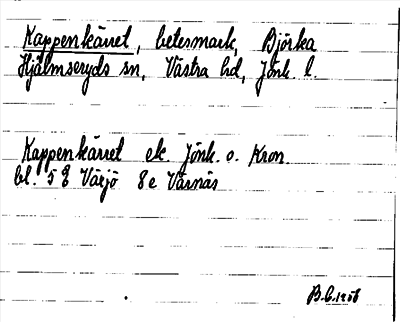 Kappenkärret, betesmark, Björka
Hjälmseryds sn, Västra hd, Jönk. l.
Kappenkärret ek. Jönk. o. Kron.
bl. 5 E Växjö 8e Värnäs
B.C. 1956